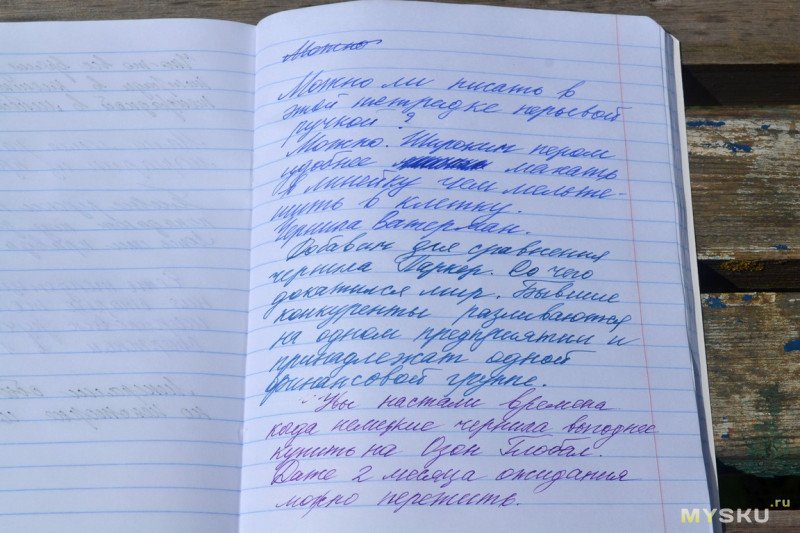 Можно
Можно ли писать в
этой тетрадке перьевой
ручкой?
Можно. Широким пером
удобнее макать
в линейку чем мельте-
шить в клетку.
Чернила Ватерман.
Добавим для сравнения
чернила Паркер. До чего
докатился мир. Бывшие
конкуренты разливаются
на одном предприятии и
принадлежат одной
финансовой группе.
Увы настали времена
когда немецкие чернила выгоднее
купить на Озон Глобал.
Даже 2 месяца ожидания
можно пережить.
MYSKU.ru